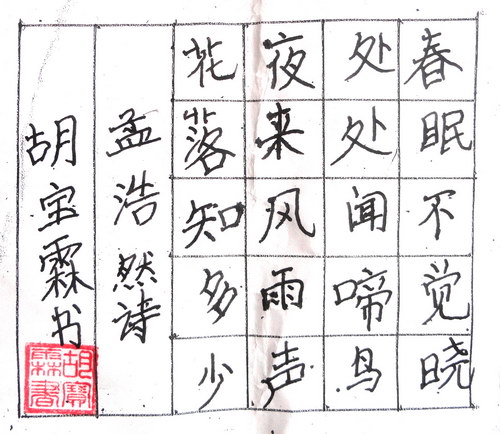 春眠不觉晓
处处闻啼鸟
夜来风雨声
花落知多少
孟浩然诗
胡宝霖书
胡寶
霖書